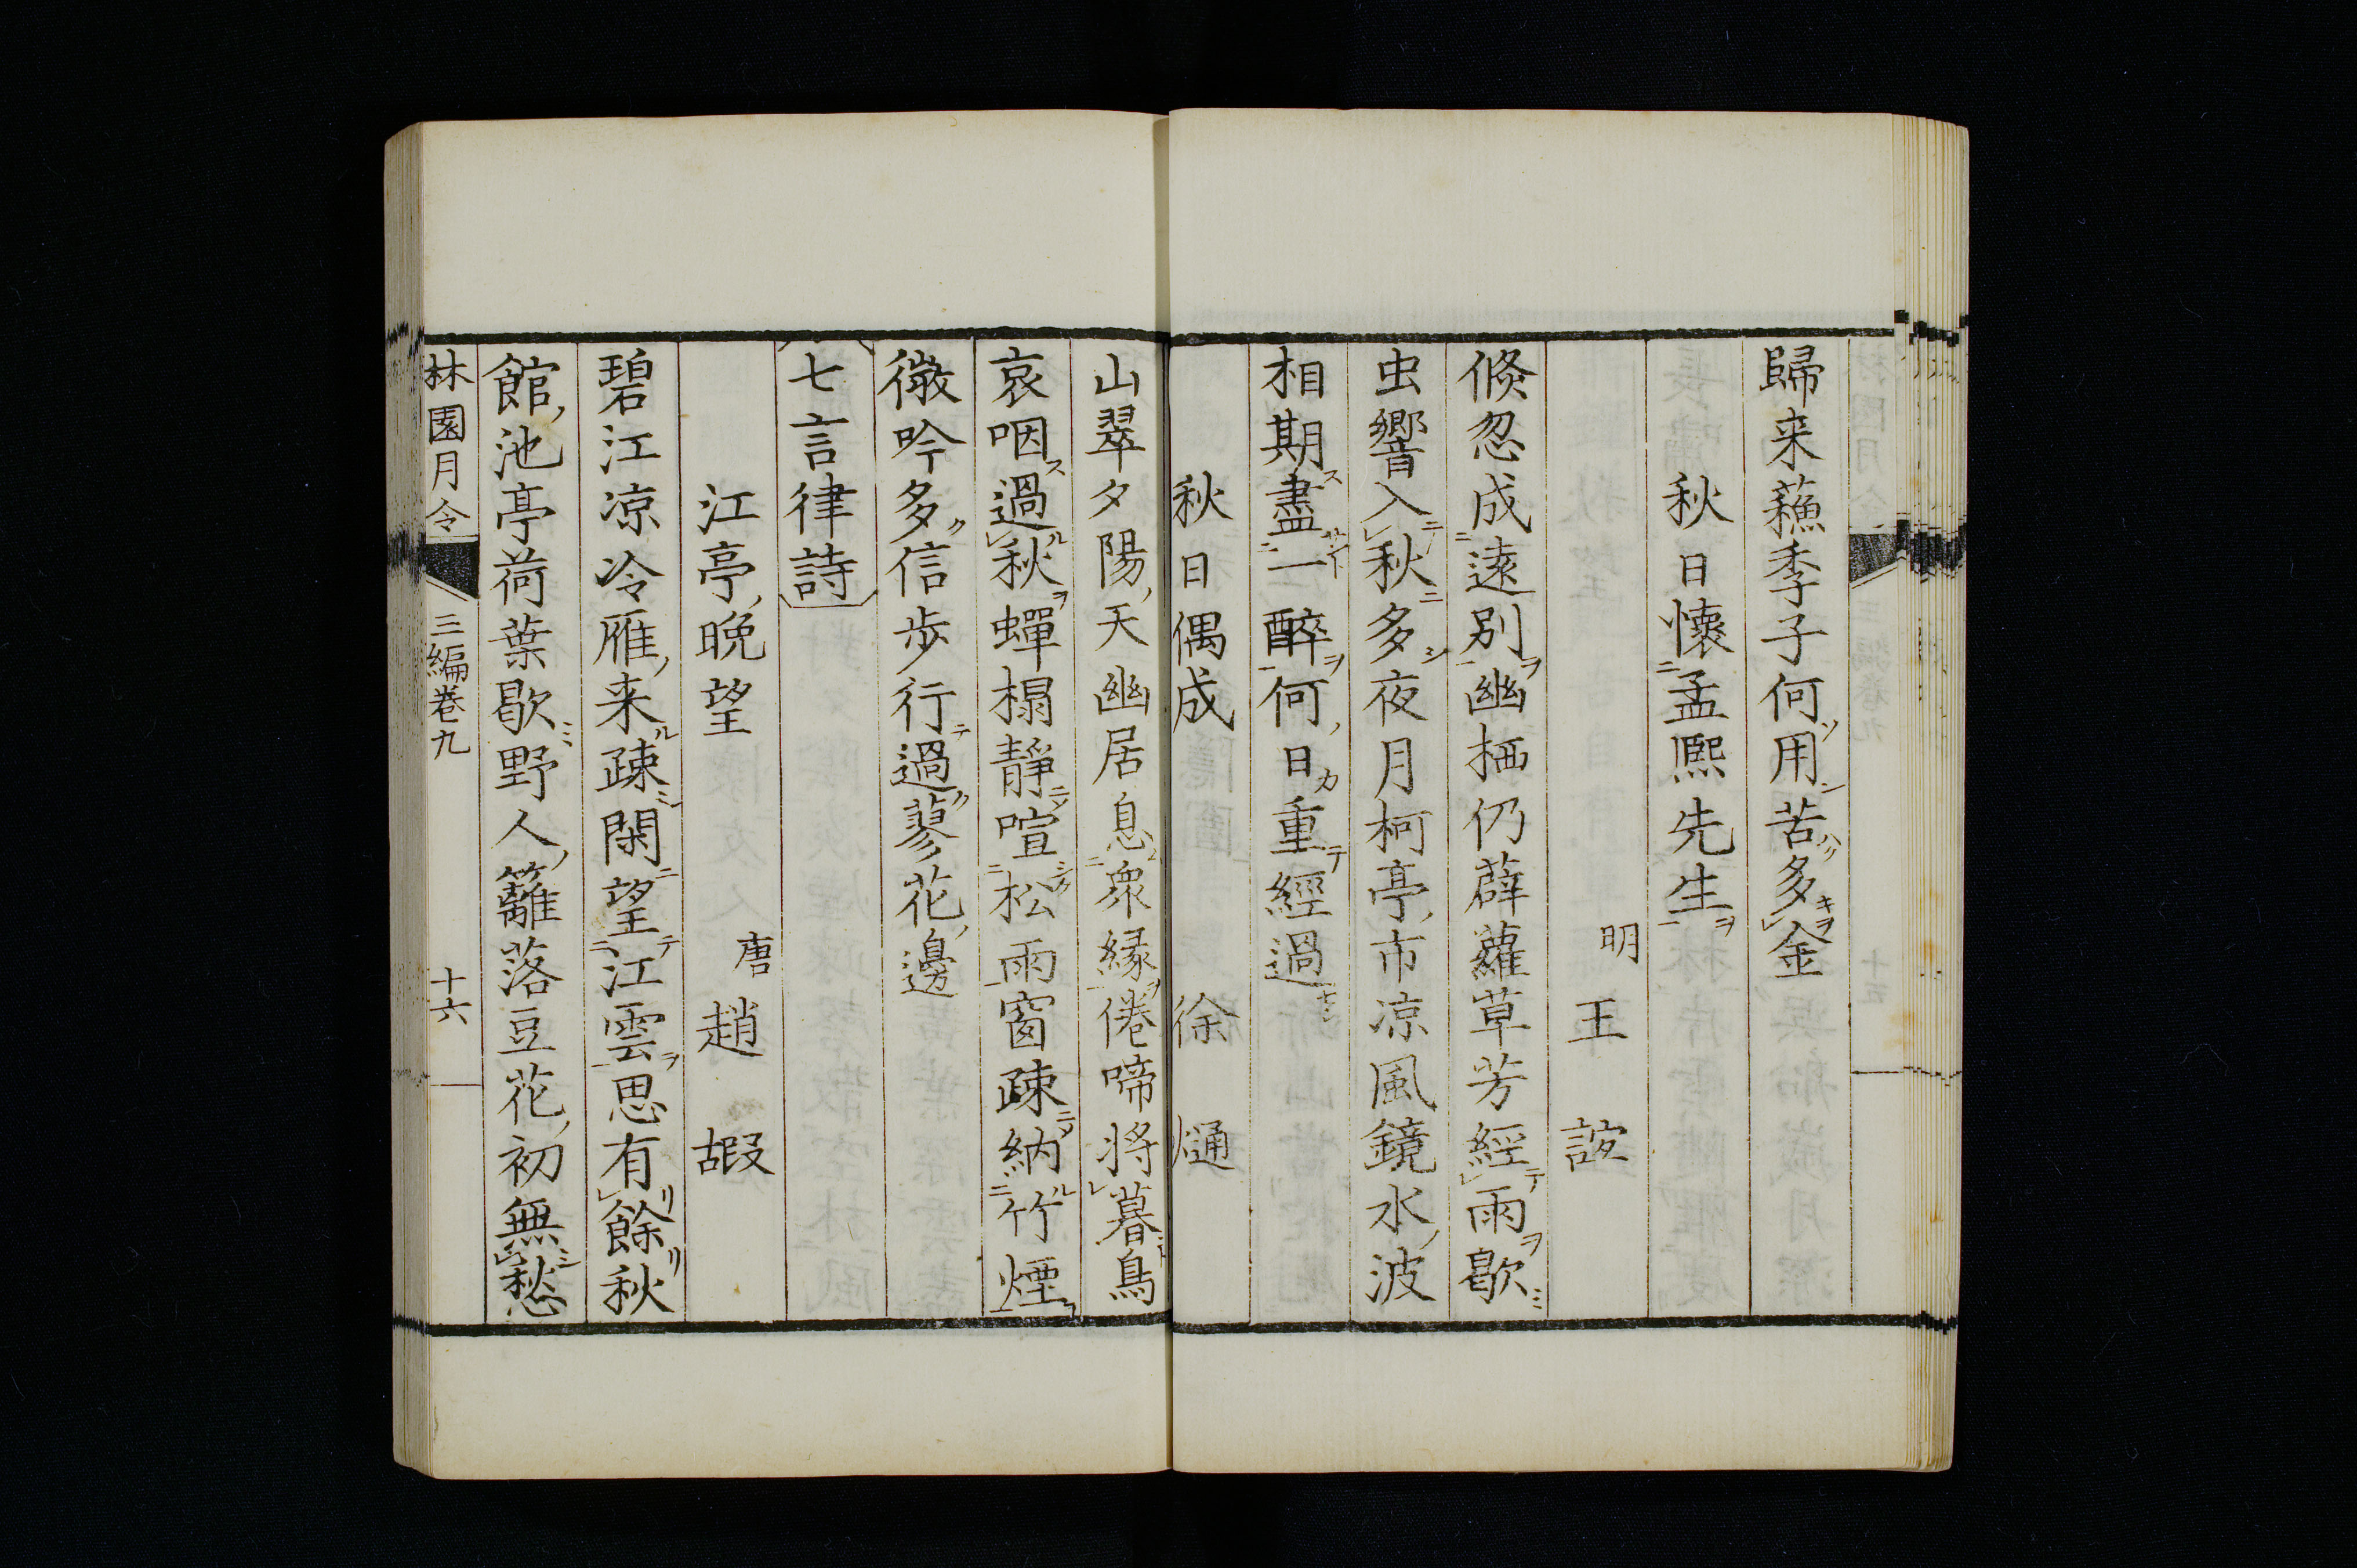 歸来蘓季子何用苦多金
秋日懷孟熈先生
明 王誼
倐忽成遠別幽栖仍薜蘿草芳經雨歇
虫響入秋多夜月柯亭市凉風鏡水波
相期盡一醉何日重經過
秋日偶成 徐𤊻
山翠夕陽天幽居息衆縁倦啼将暮鳥
哀咽過秋蟬榻靜喧松雨窗疎納竹煙
微吟多信歩行過蓼花邊
七言律詩
江亭晩望
唐 趙嘏
碧江凉冷雁来疎閑望江雲思有餘秋
館池亭荷葉歇野人籬落豆花初無愁
林園月令 三編卷九 十六